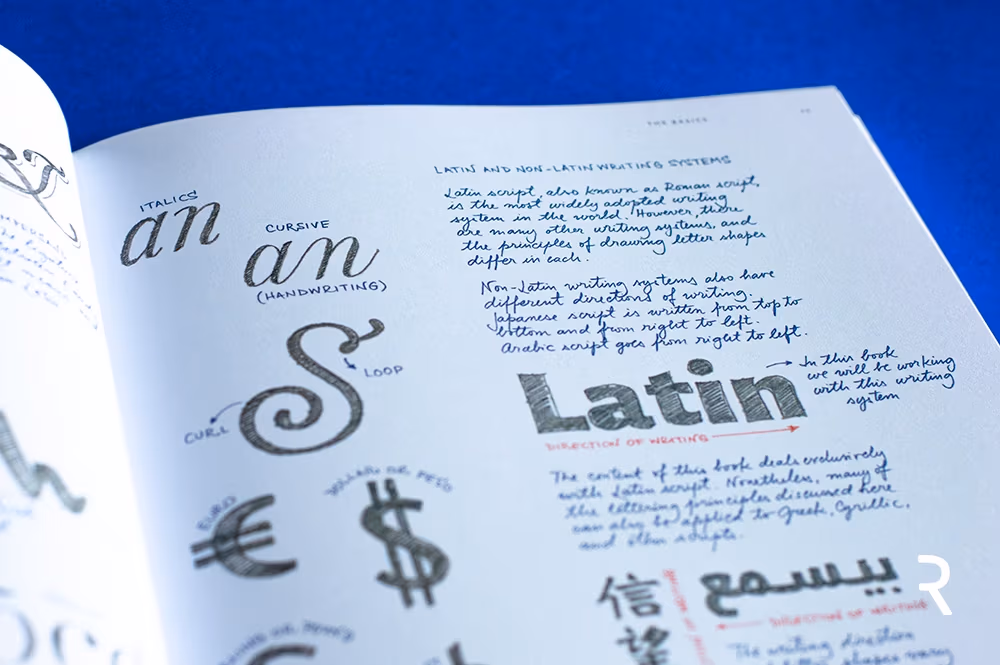 THE BASICS
ITALICS
an
CURSIVE
an
(HANDWRITING)
LOOP
CURL
EURO
€
DOLLAR OR PESO
$
LATIN AND NON-LATIN WRITING SYSTEMS
Latin script, also known as Roman script,
is the most widely adopted writing
system in the world. However, there
are many other writing systems, and
the principles of drawing letter shapes
differ in each.
Non-Latin writing systems also have
different directions of writing.
Japanese script is written from top to
bottom and from right to left.
Arabic script goes from right to left.
Latin
In this book
we will be working
with this writing
system
DIRECTION OF WRITING
The content of this book deals exclusively
with Latin script. Nonetheless, many of
the lettering principles discussed here
can also be applied to Greek, Cyrillic,
and other scripts.
信
望
بيسمع
DIRECTION OF WRITING
The writing direction
R